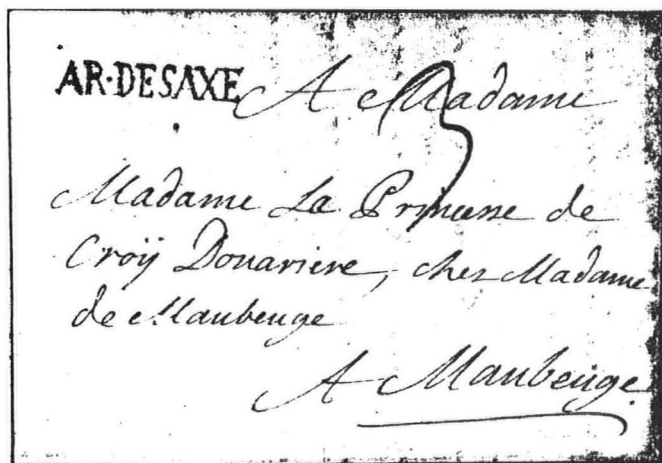 AR·DESAXE A Madame
3
Madame La Princesse de
Croÿ Douariere, chez Madame
de Maubeuge
A Maubeuge.